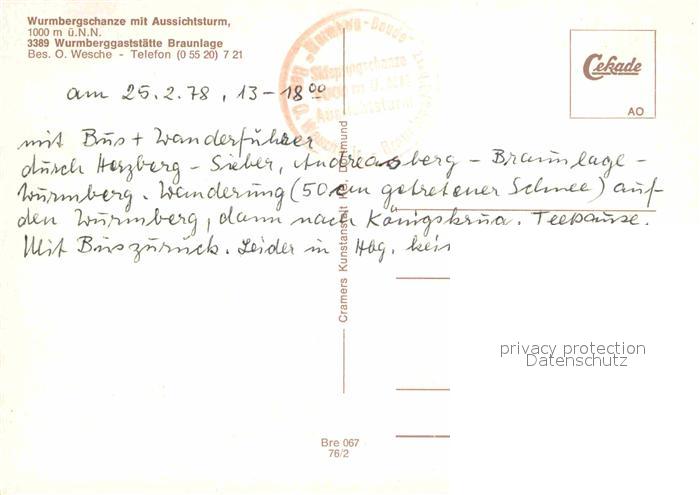 Wurmbergschanze mit Aussichtsturm,
1000 m ü.N.N.
3389 Wurmberggaststätte Braunlage
Bes. O. Wesche - Telefon (0 55 20) 7 21
Wurmberg-Baude
Skisprungschanze
1000 m ü. N.N.
Aussichtsturm
Cekade
AO
am 25.2.78, 13-18⁰⁰
mit Bus + Wanderführer
durch Herzberg - Sieber, Andreasberg - Braunlage -
Wurmberg. Wanderung (50 cm getretener Schnee) auf
den Wurmberg, dann nach Königskrug. Teepause.
Mit Bus zurück. Leider in Hbg. kein
Cramers Kunstanstalt KG, Dortmund
privacy protection
Datenschutz
Bre 067
76/2